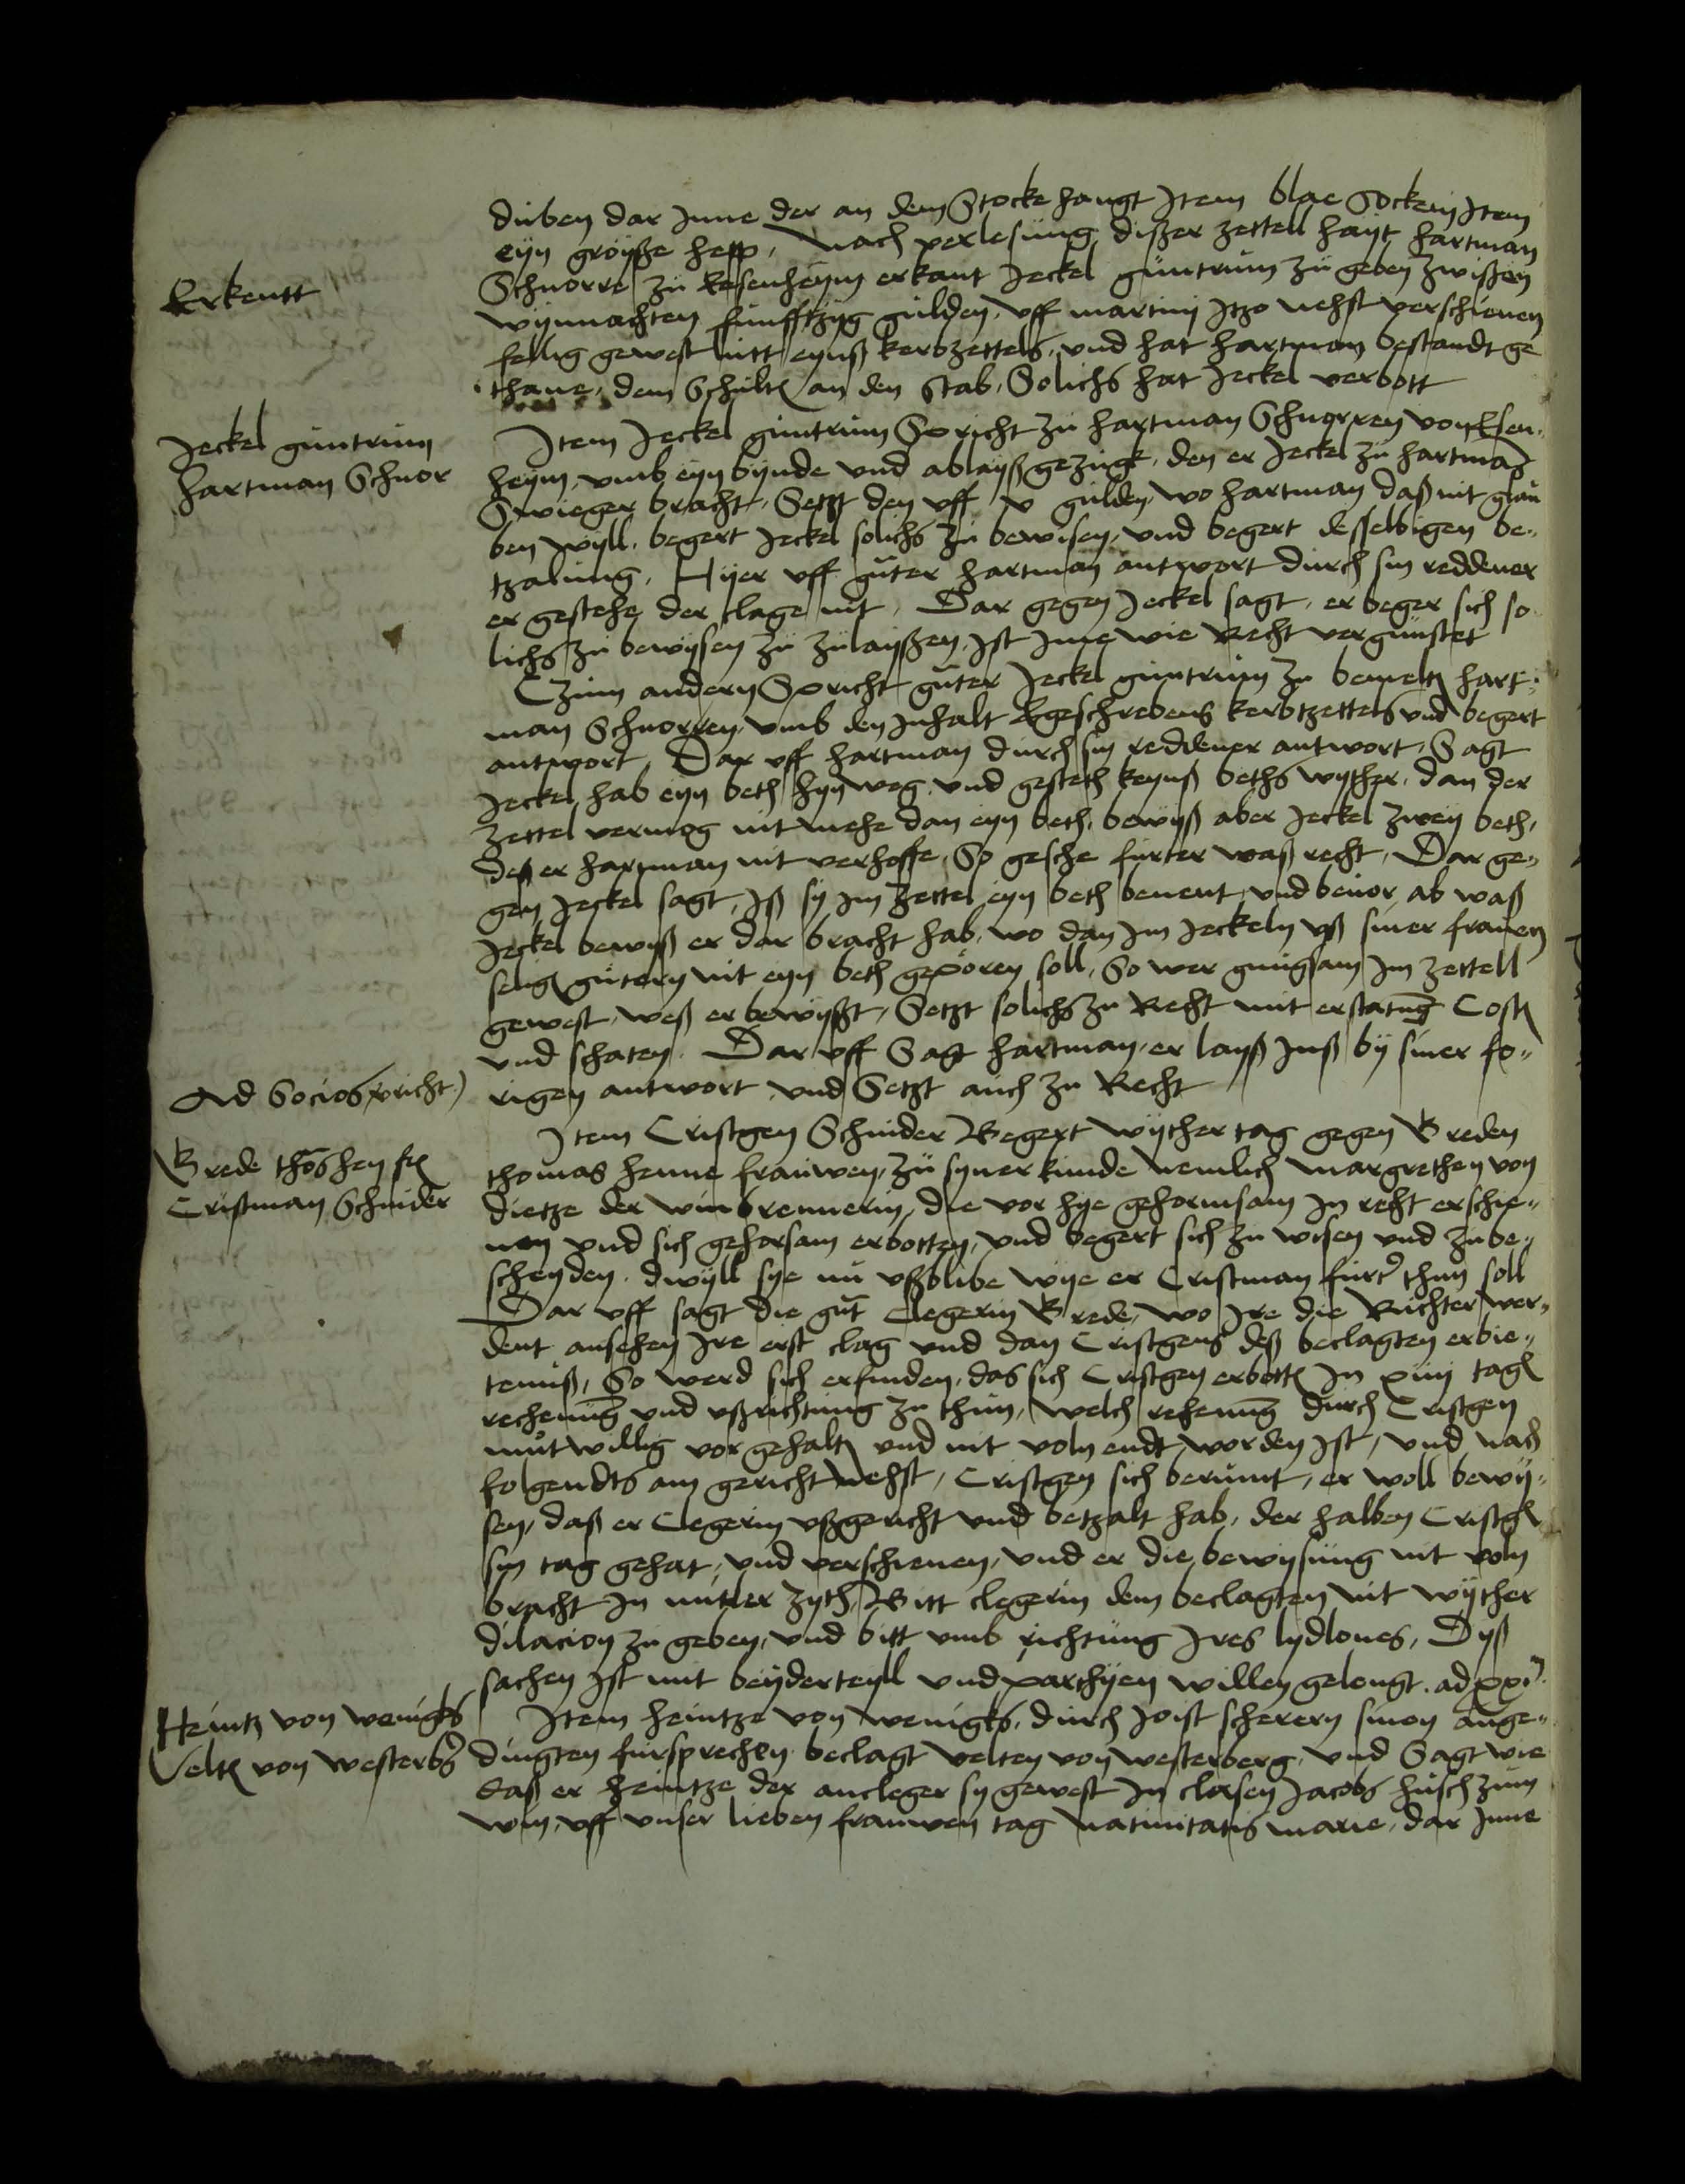 duben dar Inne der an dem Stocke hangt Item blae Socken Item
eyn groyße hepp, Nach verlesung dißer zettell hayt hartman
Erkentt
Schnorre zu Esenheym erkant Jeckel guntrum zu geben zwißen
wynnachten funfftzyg gulden, uff martiny Itzo nehst verschienen
fellig gewest lutt eynß kerbzettels, und hat hartman bestandt ge
thane, dem Schulten an den stab, Solichs hat Jeckel verbott
Jeckel guntrum
hartman Schnor
Item Jeckel guntrum Spricht zu hartman Schnorren von Esen-
heym, umb eyn bynde und ablayß gezugk, den er Jeckel zu hartmans
Swieger bracht, Setzt den uff v gulden, wo hartman daß nit glau
ben wyll, begert Jeckel solichs zu bewisen, und begert desselbigen be-
tzalung, Hyer uff guter hartman antwort durch sin reddener
er gestehe der clage nit, Dar gegen Jeckel sagt, er beger sich so
lichs zu bewysen zu zulayßen, Ist Ime wie Recht vergunstet
Czum andern Spricht guter Jeckel guntrum zu bemelten hart-
man Schnorren, umb den Inhalt Egeschrebens kerbtzettels und begert
antwort, Dar uff hartman durch sin reddener antwort, Sagt
Jeckel hab eyn beth hyn weg, und gesteth keynß beths wyther, dan der
zettel vermog nit mehe dan eyn beth, bewyß aber Jeckel zwey beth,
deß er hartman nit verhoffe, So geschee furter waß recht, Dar ge-
gen Jeckel sagt, Iß sy Im zettel eyn beth benent, und bevor ab waß
Jeckel bewiß er dar bracht hab, wo dan Im Jeckeln uß siner frauen
selig gutern nit eyn beth geporen soll, So wer gnugsam Im zettell
gewest, weß er bewyßt, Setzt solichs zu Recht mit erstatung Costen
und schaten. Dar uff Sagt hartman, er layß Inß by siner fo-
Ad Socios
rigen antwort und Setzt auch zu Recht
Brede thoshen fr
Cristman Schnider
Item Cristgen Schnider Begert wyther tag gegen Breden
thomas henne frauwen, zu syner kunde nemlich margrethen von
dietze der winbrennerin, die vor hye gehormsam In recht erschie-
nen und sich gehorsam erbotten, und begert sich zu wisen und zu be-
scheyden, dwyll sye nu ußblibe wye er Cristman furter thun soll
Dar uff sagt die gut Clegerin Brede, wo Ire die Richter wer-
dent ansehen Ire erst clag und dan Cristgens deß beclagten erbie-
teniß, So werd sich erfinden, das sich Cristgen erbotten In xiiij tagen
rechenung und ußrichtung zu thun, welch rechenung durch Cristgen
mutwillig vor gehalten und nit voln endt worden Ist, und nach
folgendts am gericht nehst, Cristgen sich berumt, er woll bewy-
sen, daß er Clegerin ußgericht und betzalt hab, der halben Cristgen
sin tag gehat, und verschienen, und er die bewysung nit voln
bracht In mitler zyth, Bitt clegerin dem beclagten nit wyther
dilacion zu geben, und bitt umb richtung Ires lydlones, Dyß
sachen Ist mit beyderteyll und parthyen willen gelengt. ad xxi
Heintz von wenigks
Velten von westerberg
Item heintze von wenigks, durch Joist scherern sinen ange-
dingten fursprechen beclagt velten von westerberg, und Sagt wie
daß er heintze der ancleger sy gewest In clasen Jacobs husch zum
win, uff unser lieben frauwen tag Nativitatis marie, dar Inne